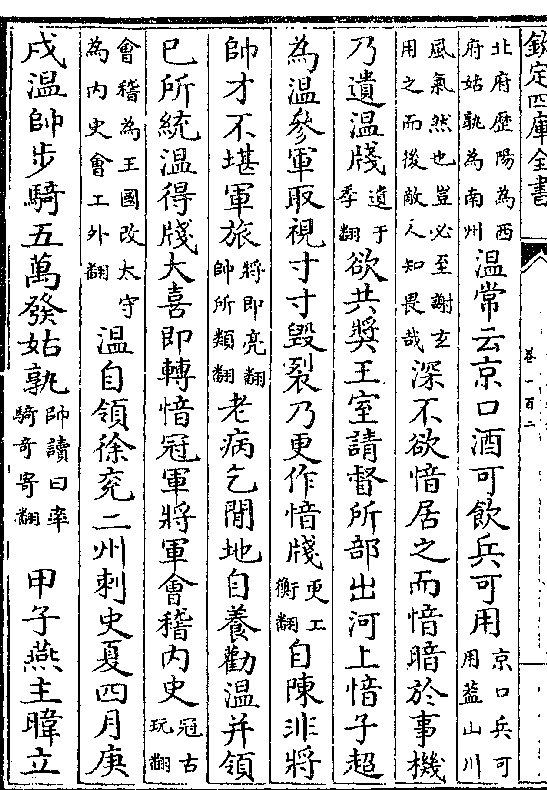 欽定四庫全書
卷一百二
北府歷陽為西府姑孰為南州溫常云京口酒可飲兵可用京口兵可用蓋山川
風氣然也豈必至謝玄用之而後敵人知畏哉深不欲愔居之而愔暗於事機
乃遺溫牋遺于季翻欲共奬王室請督所部出河上愔子超
為溫參軍取視寸寸毀裂乃更作愔牋更工衡翻自陳非將
帥才不堪軍旅將即亮翻帥所類翻老病乞閒地自養勸溫并領
已所統溫得牋大喜即轉愔冠軍將軍會稽内史冠古玩翻
會稽為王國改太守為内史會工外翻溫自領徐兖二州刺史夏四月庚
戌溫帥步騎五萬發姑孰帥讀曰率騎奇寄翻甲子燕主暐立